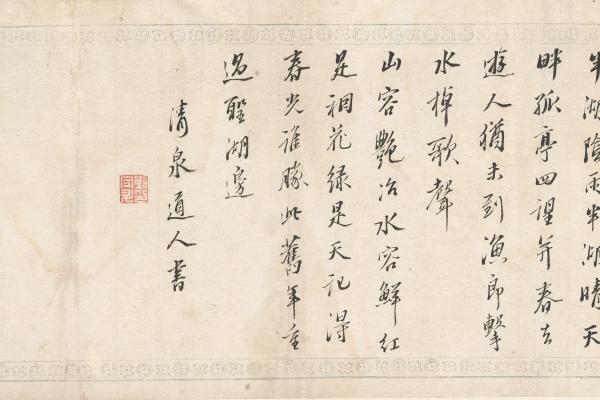 半湖陰雨半湖晴天
畔孤亭四望并春去
遊人猶未到漁郎擊
水棹歌聲
山容艷冶水容鮮紅
是花綠是天記得
春光誰勝此舊年重
過聖湖邊
清泉道人書